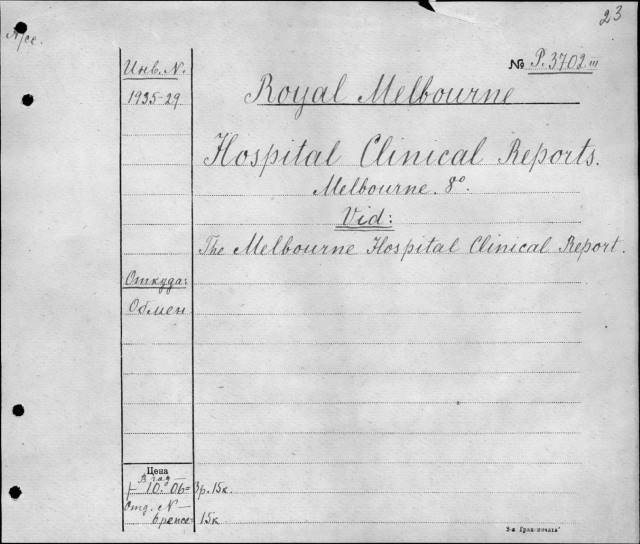 23
№ P. 3702 III
Инв. N.
1935-29
Royal Melbourne
Hospital Clinical Reports.
Melbourne. 8°.
Vid:
The Melbourne Hospital Clinical Report.
Откуда:
Обмен
Цена
В год —
10. 06 = 3р. 15к.
Отд. N —
6 pence = 15к